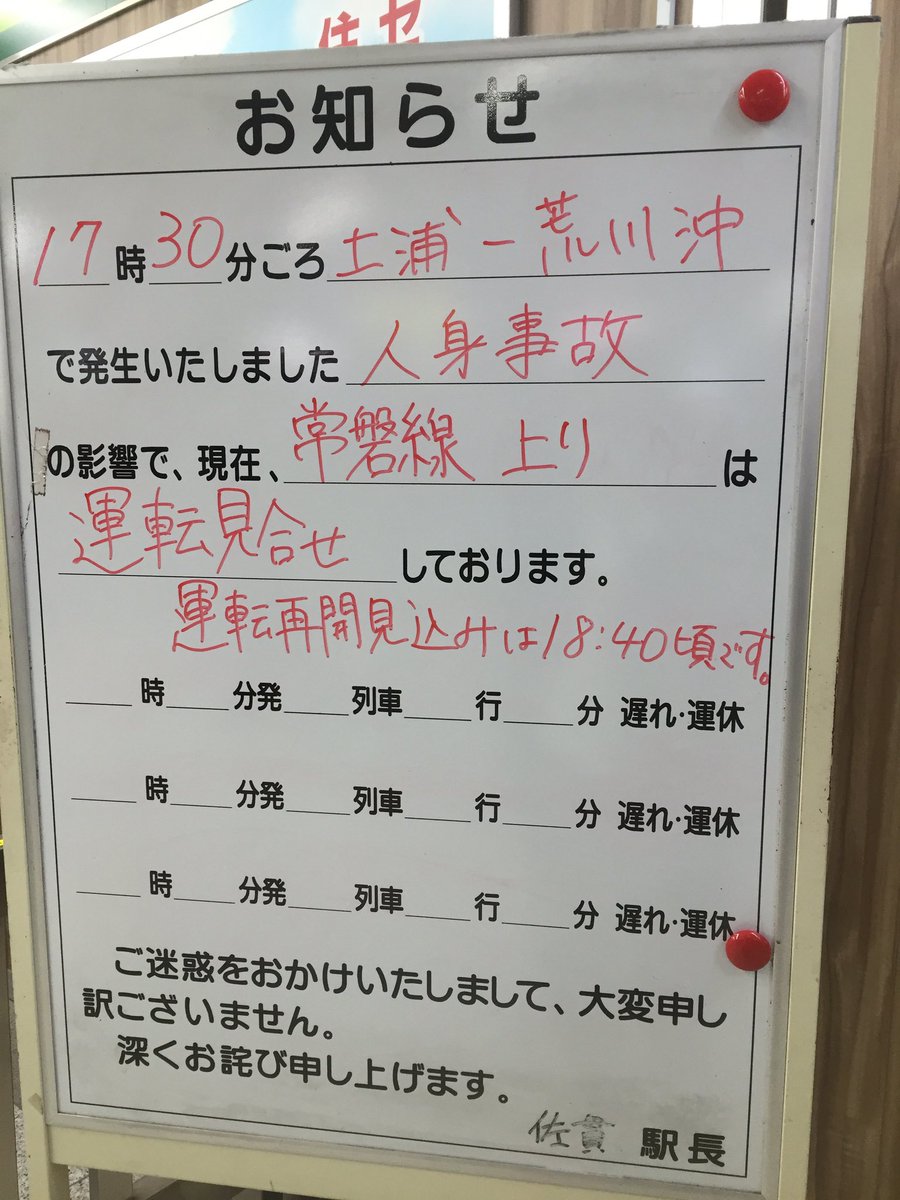 住セ
お知らせ
17時30分ごろ 土浦ー荒川沖
で発生いたしました 人身事故
の影響で、現在、常磐線 上りは
運転見合せしております。
運転再開見込みは18:40頃です。
時 分発 列車 行 分 遅れ・運休
時 分発 列車 行 分 遅れ・運休
時 分発 列車 行 分 遅れ・運休
ご迷惑をおかけいたしまして、大変申し
訳ございません。
深くお詫び申し上げます。
佐貫 駅長